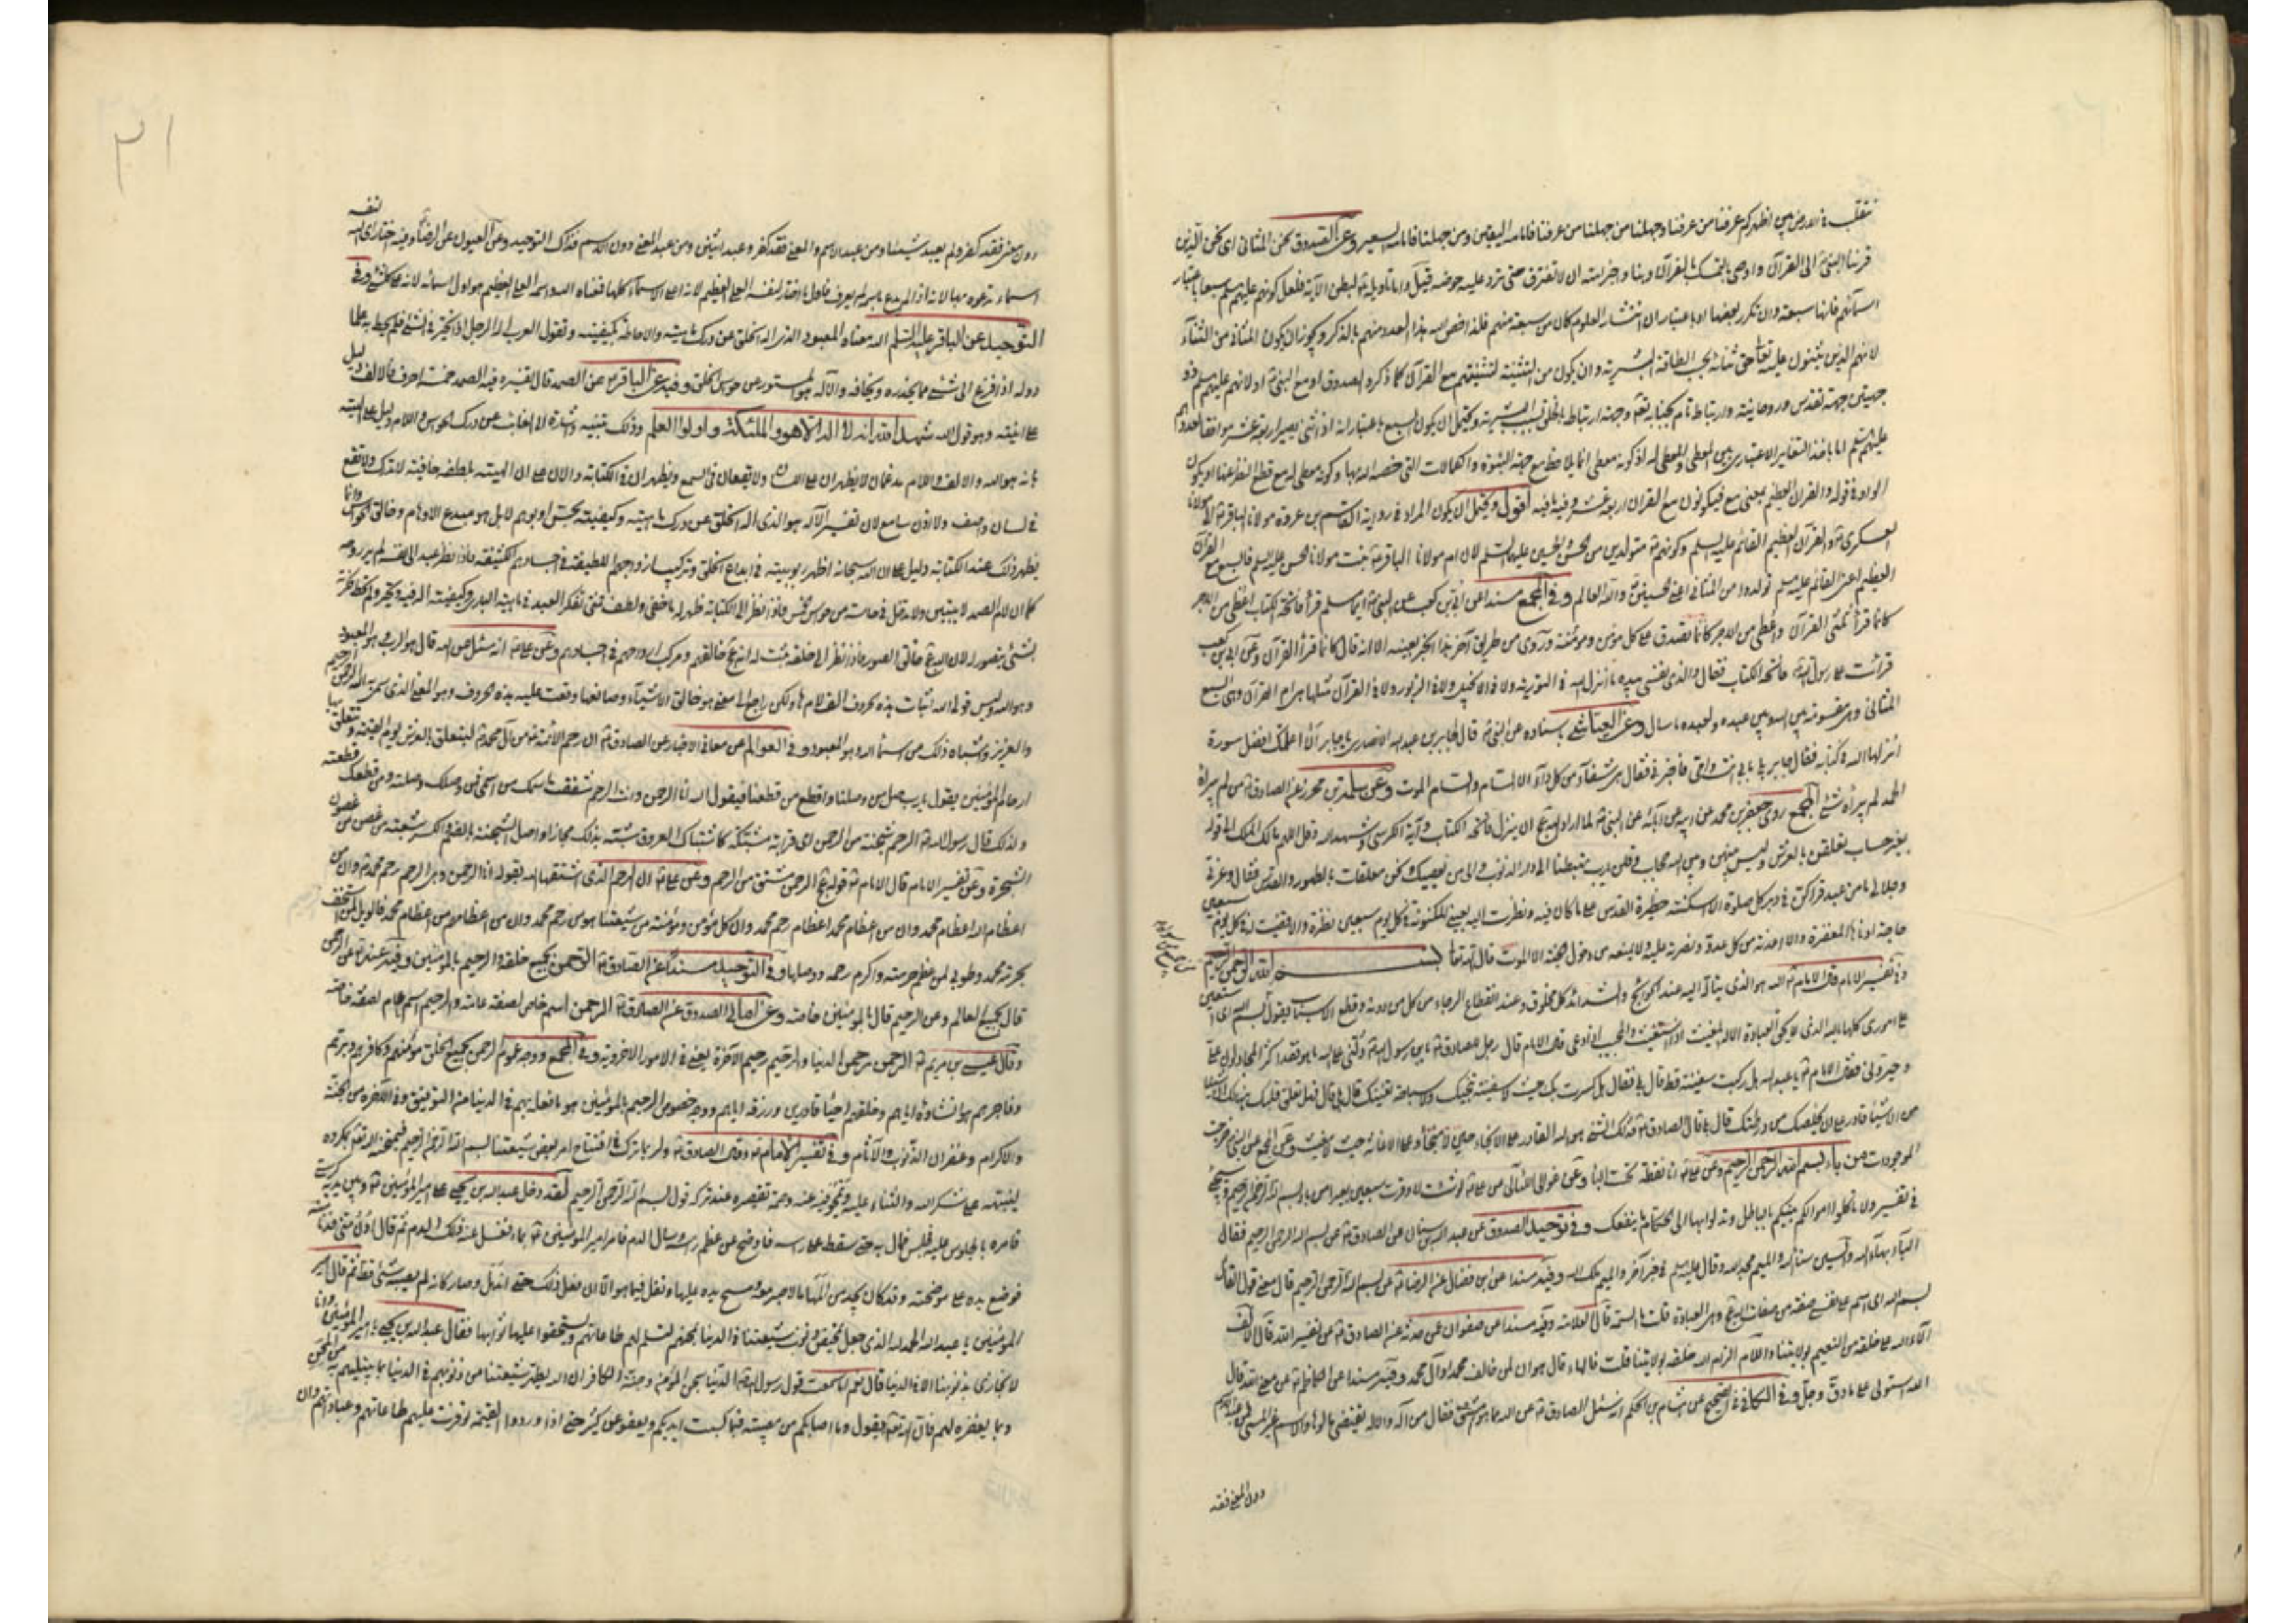 نتقلب فى الارض بين اظهركم عرفنا من عرفنا وجهلنا من جهلنا من عرفنا فامامه اليقين ومن جهلنا فامامه السعير وعن الصدوق نحن المثانى اى نحن الذين
قرننا النبى الى القرآن واوصى بالتمسك بالقرآن وبنا واخبر امته ان لا نفترق حتى نرد عليه حوضه
اسمائهم فانها سبعة وان تكرر بعضها او باعتبار ان انتشار العلوم كان من سبعة منهم فلذا خص الله هذا العدد منهم بالذكر ويجوز ان يكون المثانى من الثناء
لانهم الذين يثنون عليه تعالى حق ثنائه بحسب الطاقة البشرية وان يكون من التثنية لتثنيتهم مع القرآن كما ذكره الصدوق او مع النبى او لانهم عليهم السلم ذو
جهتين جهة تقدس وروحانية وارتباط تام بجنابه تعالى وجهة ارتباط بالخلق بسبب البشرية ويحتمل ان يكون السبع باعتبار انه اذا ثنى يصير اربعة عشر موافقا لعددهم
عليهم السلم اما باخذ التغاير الاعتبارى بين المعطى والمعطى له اذ كونه معطى انما يلاحظ مع جهة النبوة والكمالات التى خصه الله بها وكونه معطى له مع قطع النظر عنها او يكون
الواو فى قوله والقرآن العظيم بمعنى مع فيكونون مع القرآن اربعة عشر وفيه ما فيه اقول ويحتمل ان يكون المراد فى رواية القاسم بن عروة مولانا الباقر الى مولانا
العسكرى والقرآن العظيم القائم عليه السلم وكونهم متولدين من الحسن والحسين عليهما السلم لان ام مولانا الباقر بنت مولانا الحسن عليه السلم فالسبع مع القرآن
العظيم اعنى القائم عليه السلم تولدوا من المثانى اعنى الحسنين والله العالم وفى المجمع مسندا عن ابى بن كعب عن النبى ايما مسلم قرأ فاتحة الكتاب اعطى من الاجر
كانما قرأ ثلثى القرآن واعطى من الاجر كانما تصدق على كل مؤمن ومؤمنة وروى من طريق آخر هذا الخبر بعينه الا انه قال كانما قرأ القرآن وعن ابى بن كعب
قرائت على رسول الله فاتحة الكتاب فقال والذى نفسى بيده ما انزل الله فى التورية ولا فى الانجيل ولا فى الزبور ولا فى القرآن مثلها هى ام القرآن وهى السبع
المثانى وهى مقسومة بين الله وبين عبده ولعبده ما سال وعن العياشى باسناده عن النبى قال لجابر بن عبدالله الانصارى يا جابر الا اعلمك افضل سورة
انزلها الله فى كتابه فقال جابر بلى بابى انت وامى فاخبرنى فقال هى شفاء من كل داء الا السام والسام الموت وعن سلمة بن محرز عن الصادق من لم يبرأه
الحمد لم يبرأه شئ المجمع روى جعفر بن محمد عن ابيه عن آبائه عن النبى لما اراد الله ان ينزل فاتحة الكتاب وآية الكرسى وشهد الله وقل اللهم مالك الملك الى قوله
بغير حساب تعلقن بالعرش وليس بينهن وبين الله حجاب وقلن يا رب تهبطنا الى دار الذنوب والى من يعصيك ونحن معلقات بالطهور والقدس فقال وعزتى
وجلالى ما من عبد قراكن فى دبر كل صلوة الا اسكنته حظيرة القدس على ما كان فيه ونظرت اليه بعينى المكنونة فى كل يوم سبعين نظرة والا قضيت له فى كل يوم سبعين
حاجة ادناها المغفرة والا اعذته من كل عدو ونصرته عليه ولا يمنعه من دخول الجنة الا الموت قال الله تعالى بسم الله الرحمن الرحيم
وفى تفسير الامام قال الامام الله هو الذى يتأله اليه عند الحوائج والشدائد كل مخلوق وعند انقطاع الرجاء من كل من دونه وقطع الاسباب يقول بسم الله اى استعين
على امورى كلها بالله الذى لا يحق العبادة الا له المغيث اذا استغيث والمجيب اذا دعى قال الامام قال رجل للصادق يا بن رسول الله دلنى على الله ما هو فقد اكثر المجادلون على
وحيرونى فقال الامام يا عبدالله هل ركبت سفينة قط قال بلى فقال هل كسرت بك حيث لا سفينة تنجيك ولا سباحة تغنيك قال بلى قال فهل تعلق قلبك هنالك ان شيئا
من الاشياء قادر على ان يخلصك من ورطتك قال بلى قال الصادق فذلك الشئ هو الله القادر على الانجاء حين لا منجى وعلى الاغاثة حيث لا مغيث
الموجودات من باء بسم الله الرحمن الرحيم وعن على انا نقطة تحت الباء وعن غوالى اللئالى عن على لو شئت لاوقرت سبعين بعيرا من باء بسم الله الرحمن الرحيم
فى تفسير ولا تاكلوا اموالكم بينكم بالباطل وتدلوا بها الى الحكام ما ينفعك وفى توحيد الصدوق عن عبدالله بن سنان عن الصادق عن بسم الله الرحمن الرحيم فقال
الباء بهاء الله والسين سناء الله والميم مجد الله وقال عليه السلم فى خبر آخر والميم ملك الله وفيه مسندا عن ابن فضال عن الرضا عن بسم الله الرحمن الرحيم قال معنى قول القائل
بسم الله اى اسم على نفسى سمة من سمات الله وهى العبادة قلت ما السمة قال العلامة وفيه مسندا عن صفوان عمن حدثه عن الصادق عن تفسير الله قال الالف
آلاء الله على خلقه من النعيم بولايتنا واللام الزام الله خلقه بولايتنا قلت فالهاء قال هوان لمن خالف محمدا وآل محمد وفيه مسندا عن الكاظم عن معنى الله قال
الله استولى على ما دق وجل وفى الكافى فى الصحيح عن هشام بن الحكم انه سئل الصادق عن الله مما هو مشتق فقال من اله واله يقتضى مالوها والاسم غير المسمى فمن عبد الاسم
دون المعنى فقد
٢١
دون المعنى فقد كفر ولم يعبد شيئا ومن عبد الاسم والمعنى فقد كفر وعبد اثنين ومن عبد المعنى دون الاسم فذاك التوحيد وعن العيون عن الرضا وفيه اختار لنفسه
اسماء تدعوه بها لانه اذا لم يدع باسمه لم يعرف فاول ما اختار لنفسه العلى العظيم لانه اعلى الاسماء كلها فمعناه الله واسمه العلى العظيم هو اول اسمائه لانه على كل شئ وفى
التوحيد عن الباقر عليه السلم الله معناه المعبود الذى اله الخلق عن درك مائيته والاحاطة بكيفيته وتقول العرب اله الرجل اذا تحير فى الشئ فلم يحط به علما
ووله اذا فزع الى شئ مما يحذره ويخافه والاله هو المستور عن حواس الخلق وفيه عن الباقر عن الصمد قال تفسيره فيه الصمد خمسة احرف فالالف دليل
على انيته وهو قول الله شهد الله انه لا اله الا هو والملئكة واولوا العلم وذلك تنبيه واشارة الى الغائب عن درك الحواس واللام دليل على الهيته
بانه هو الله والالف واللام مدغمان لا يظهران على اللسان ولا يقعان فى السمع ويظهران فى الكتابة دليلان على ان الهيته بلطفه خافية لا تدرك ولا تقع
فى لسان واصف ولا اذن سامع لان تفسير الاله هو الذى اله الخلق عن درك مائيته وكيفيته بحس او بوهم لا بل هو مبدع الاوهام وخالق الحواس وانما
يظهر ذلك عند الكتابة دليل على ان الله سبحانه اظهر ربوبيته فى ابداع الخلق وتركيب ارواحهم اللطيفة فى اجسادهم الكثيفة فاذا نظر عبد الى نفسه لم ير روحه
كما ان لام الصمد لا يتبين ولا يدخل فى حاسة من حواس الخمس فاذا نظر الى الكتابة ظهر له ما خفى ولطف فمتى تفكر العبد فى مائية البارى وكيفيته اله فيه وتحير ولم تحط فكرته
بشئ يتصور له لانه خالق الصور فاذا نظر الى خلقه ثبت له انه خالقهم ومركب ارواحهم فى اجسادهم وعن على انه سئل عن الله قال هو الرب وهو المعبود
وهو الله وليس قولى الله اثبات هذه الحروف الف لام ها ولكن راجع الى معنى هو خالق الاشياء وصانعها وقعت عليه هذه الحروف وهو المعنى الذى سمى به الله الرحمن الرحيم
والعزيز واشباه ذلك من اسمائه وهو المعبود وفى العوالم عن معانى الاخبار عن الصادق ان رحم الائمة من آل محمد ليتعلق بالعرش يوم القيمة وتتعلق بها
ارحام المؤمنين يقول يا رب صل من وصلنا واقطع من قطعنا فيقول الله انا الرحمن وانت الرحم شققت اسمك من اسمى فمن وصلك وصلته ومن قطعك قطعته
ولذلك قال رسول الله الرحم شجنة من الرحمن اى قرابة مشتبكة كاشتباك العروق شبه بذلك مجازا واصل الشجنة بالضم والكسر شعبة من غصن من غصون
الشجرة وعن تفسير الامام قال الامام قوله الرحمن مشتق من الرحم وعن على ان الرحم الذى اشتقها الله بقوله انا الرحمن وهى الرحم رحم محمد وان من
اعظام الله اعظام محمد وان من اعظام محمد اعظام رحم محمد وان كل مؤمن ومؤمنة من شيعتنا هو من رحم محمد وان من اعظامهم من اعظام محمد فالويل لمن استخف
بحرمة محمد وطوبى لمن عظم حرمته واكرم رحمه ووصلها وفى التوحيد مسندا عن الصادق الرحمن بجميع خلقه والرحيم بالمؤمنين وفيه عنه عن الرحمن
قال بجميع العالم وعن الرحيم قال بالمؤمنين خاصة وعن الصدوق عن الصادق الرحمن اسم خاص لصفة عامة والرحيم اسم عام لصفة خاصة
وقال عيسى بن مريم الرحمن رحمن الدنيا والرحيم رحيم الآخرة يعنى فى الامور الاخروية وفى المجمع ووجه عموم الرحمن بجميع الخلق مؤمنهم وكافرهم وبرهم
وفاجرهم هو انشاؤه اياهم وخلقهم احياء قادرين ورزقه اياهم ووجه خصوص الرحيم بالمؤمنين هو ما فعله بهم فى الدنيا من التوفيق وفى الآخرة من الجنة
والاكرام وغفران الذنوب والآثام وفى تفسير الامام وقال الصادق ولربما ترك فى افتتاح امر بعض شيعتنا بسم الله الرحمن الرحيم فيمتحنه الله بمكروه
لينبهه على شكر الله والثناء عليه ويمحو فيه عنه وصمة تقصيره عند تركه قول بسم الله الرحمن الرحيم لقد دخل عبدالله بن يحيى على امير المؤمنين وبين يديه كرسى
فامره بالجلوس عليه فجلس فمال به حتى سقط على راسه فاوضح عن عظم راسه وسال الدم فامر امير المؤمنين بماء فغسل عنه ذلك الدم ثم قال ادن منى فدنا منه
فوضع يده على موضحته وقد كان يجد من المها ما لا صبر معه ومسح يده عليها وتفل فيها فما هو الا ان فعل ذلك حتى اندمل وصار كانه لم يصبه شئ قط ثم قال امير
المؤمنين يا عبدالله الحمد لله الذى جعل تمحيص ذنوب شيعتنا فى الدنيا بمحنهم لتسلم لهم طاعاتهم ويستحقوا عليها ثوابها فقال عبدالله بن يحيى يا امير المؤمنين وانا
لا نجازى بذنوبنا الا فى الدنيا قال نعم اما سمعت قول رسول الله الدنيا سجن المؤمن وجنة الكافر ان الله يطهر شيعتنا من ذنوبهم فى الدنيا بما يبتليهم به من المحن
وبما يغفره لهم فان الله يقول وما اصابكم من مصيبة فبما كسبت ايديكم ويعفو عن كثير حتى اذا وردوا القيمة توفرت عليهم طاعاتهم وعباداتهم وان